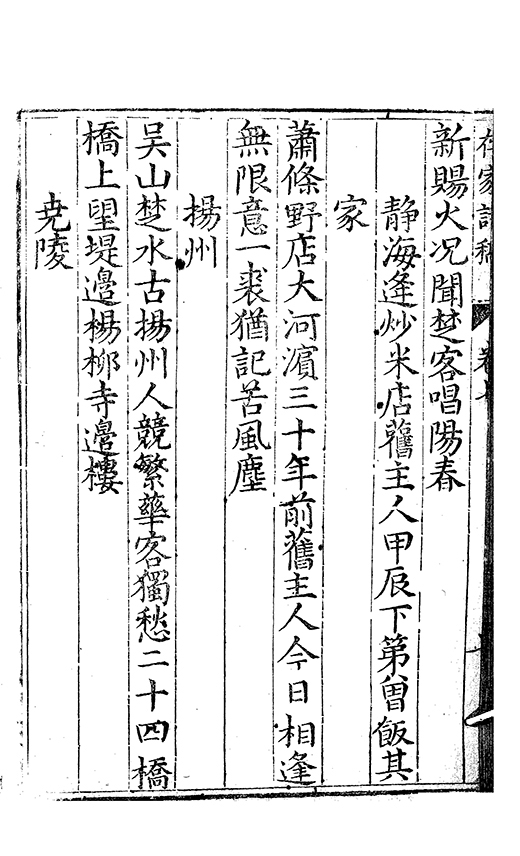 新賜火况聞楚客唱陽春
静海逢炒米店舊主人甲辰下第曽飯其
家
蕭條野店大河濱三十年前舊主人今日相逢
無限意一裘猶記苦風塵
揚州
吴山楚水古揚州人競繁華客獨愁二十四橋
橋上望堤邉楊柳寺邉樓
尭陵